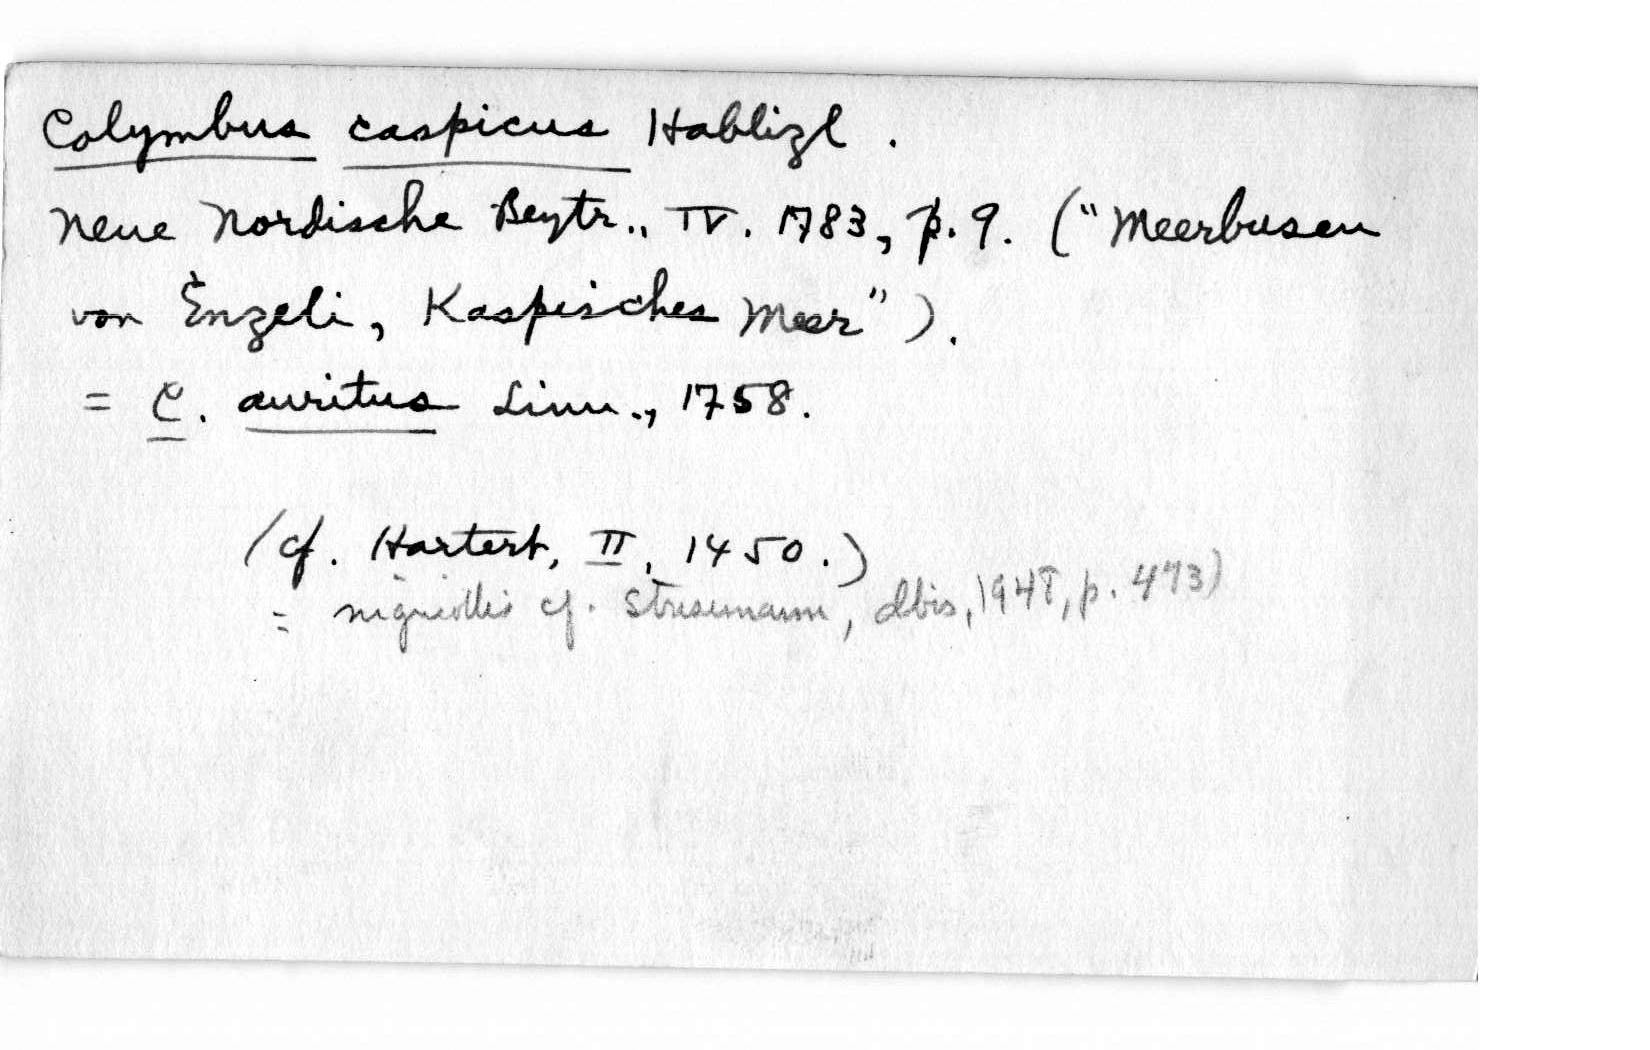 Colymbus caspicus Hablizl.
Neue Nordische Beytr., IV. 1783, p. 9. ("Meerbusen
von Enzeli, Kaspisches Meer").
= C. auritus Linn., 1758.
(cf. Hartert, II, 1450.)
= nigricollis cf. Stresemann, Ibis, 1948, p. 473)